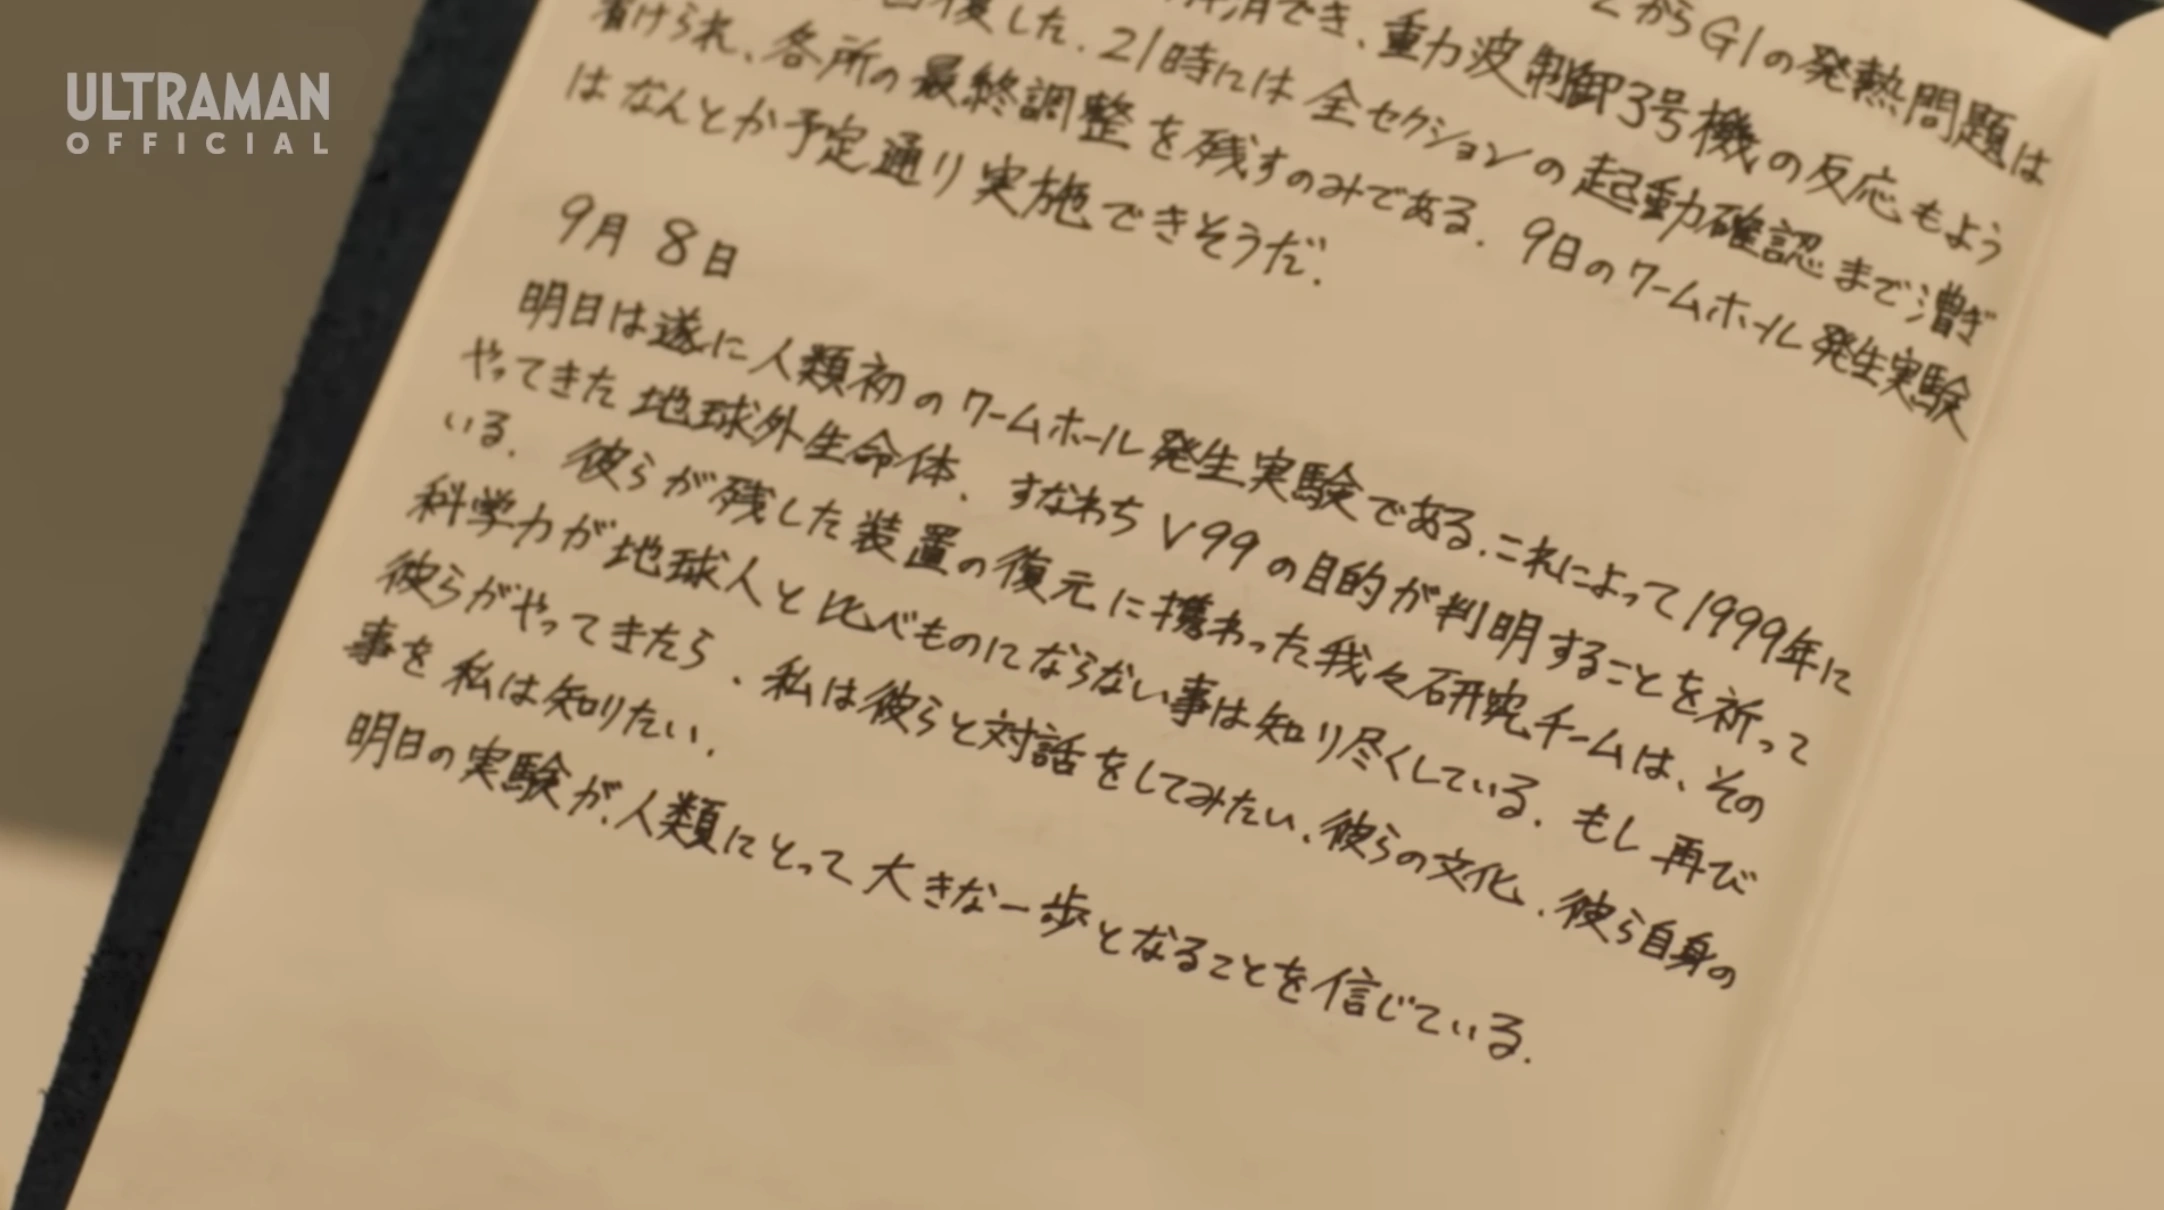 ULTRAMAN
OFFICIAL
からG1の発熱問題は
でき、重力波制御3号機の反応もよう
復した。21時には全セクションの起動確認まで漕ぎ
着けられ、各所の最終調整を残すのみである。9日のワームホール発生実験
はなんとか予定通り実施できそうだ。
9月8日
明日は遂に人類初のワームホール発生実験である。これによって1999年に
やってきた地球外生命体、すなわちV99の目的が判明することを祈って
いる。彼らが残した装置の復元に携わった我々研究チームは、その
科学力が地球人と比べものにならない事は知り尽くしている。もし再び
彼らがやってきたら、私は彼らと対話をしてみたい。彼らの文化、彼ら自身の
事を私は知りたい。
明日の実験が、人類にとって大きな一歩となることを信じている。